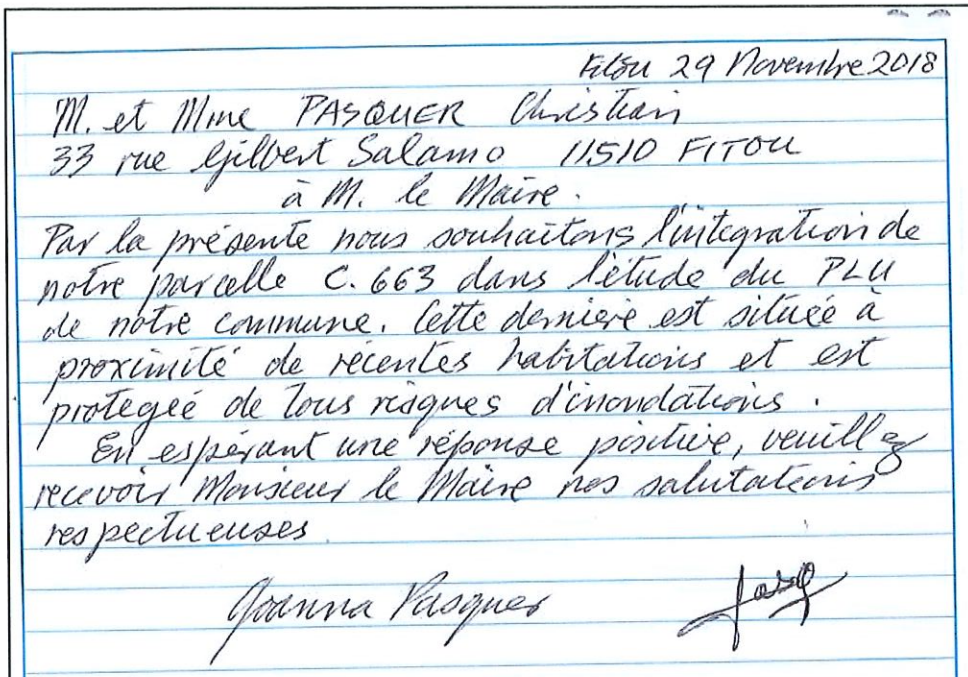 Fitou 29 Novembre 2018
M. et Mme PASQUER Christian
33 rue Gilbert Salamo 11510 FITOU
à M. le Maire.
Par la présente nous souhaitons l'intégration de
notre parcelle C.663 dans l'étude du PLU
de notre commune. Cette dernière est située à
proximité de récentes habitations et est
protegée de tous risques d'inondations.
En espérant une réponse positive, veuillez
recevoir Monsieur le Maire nos salutations
respectueuses.
Joanna Pasquer